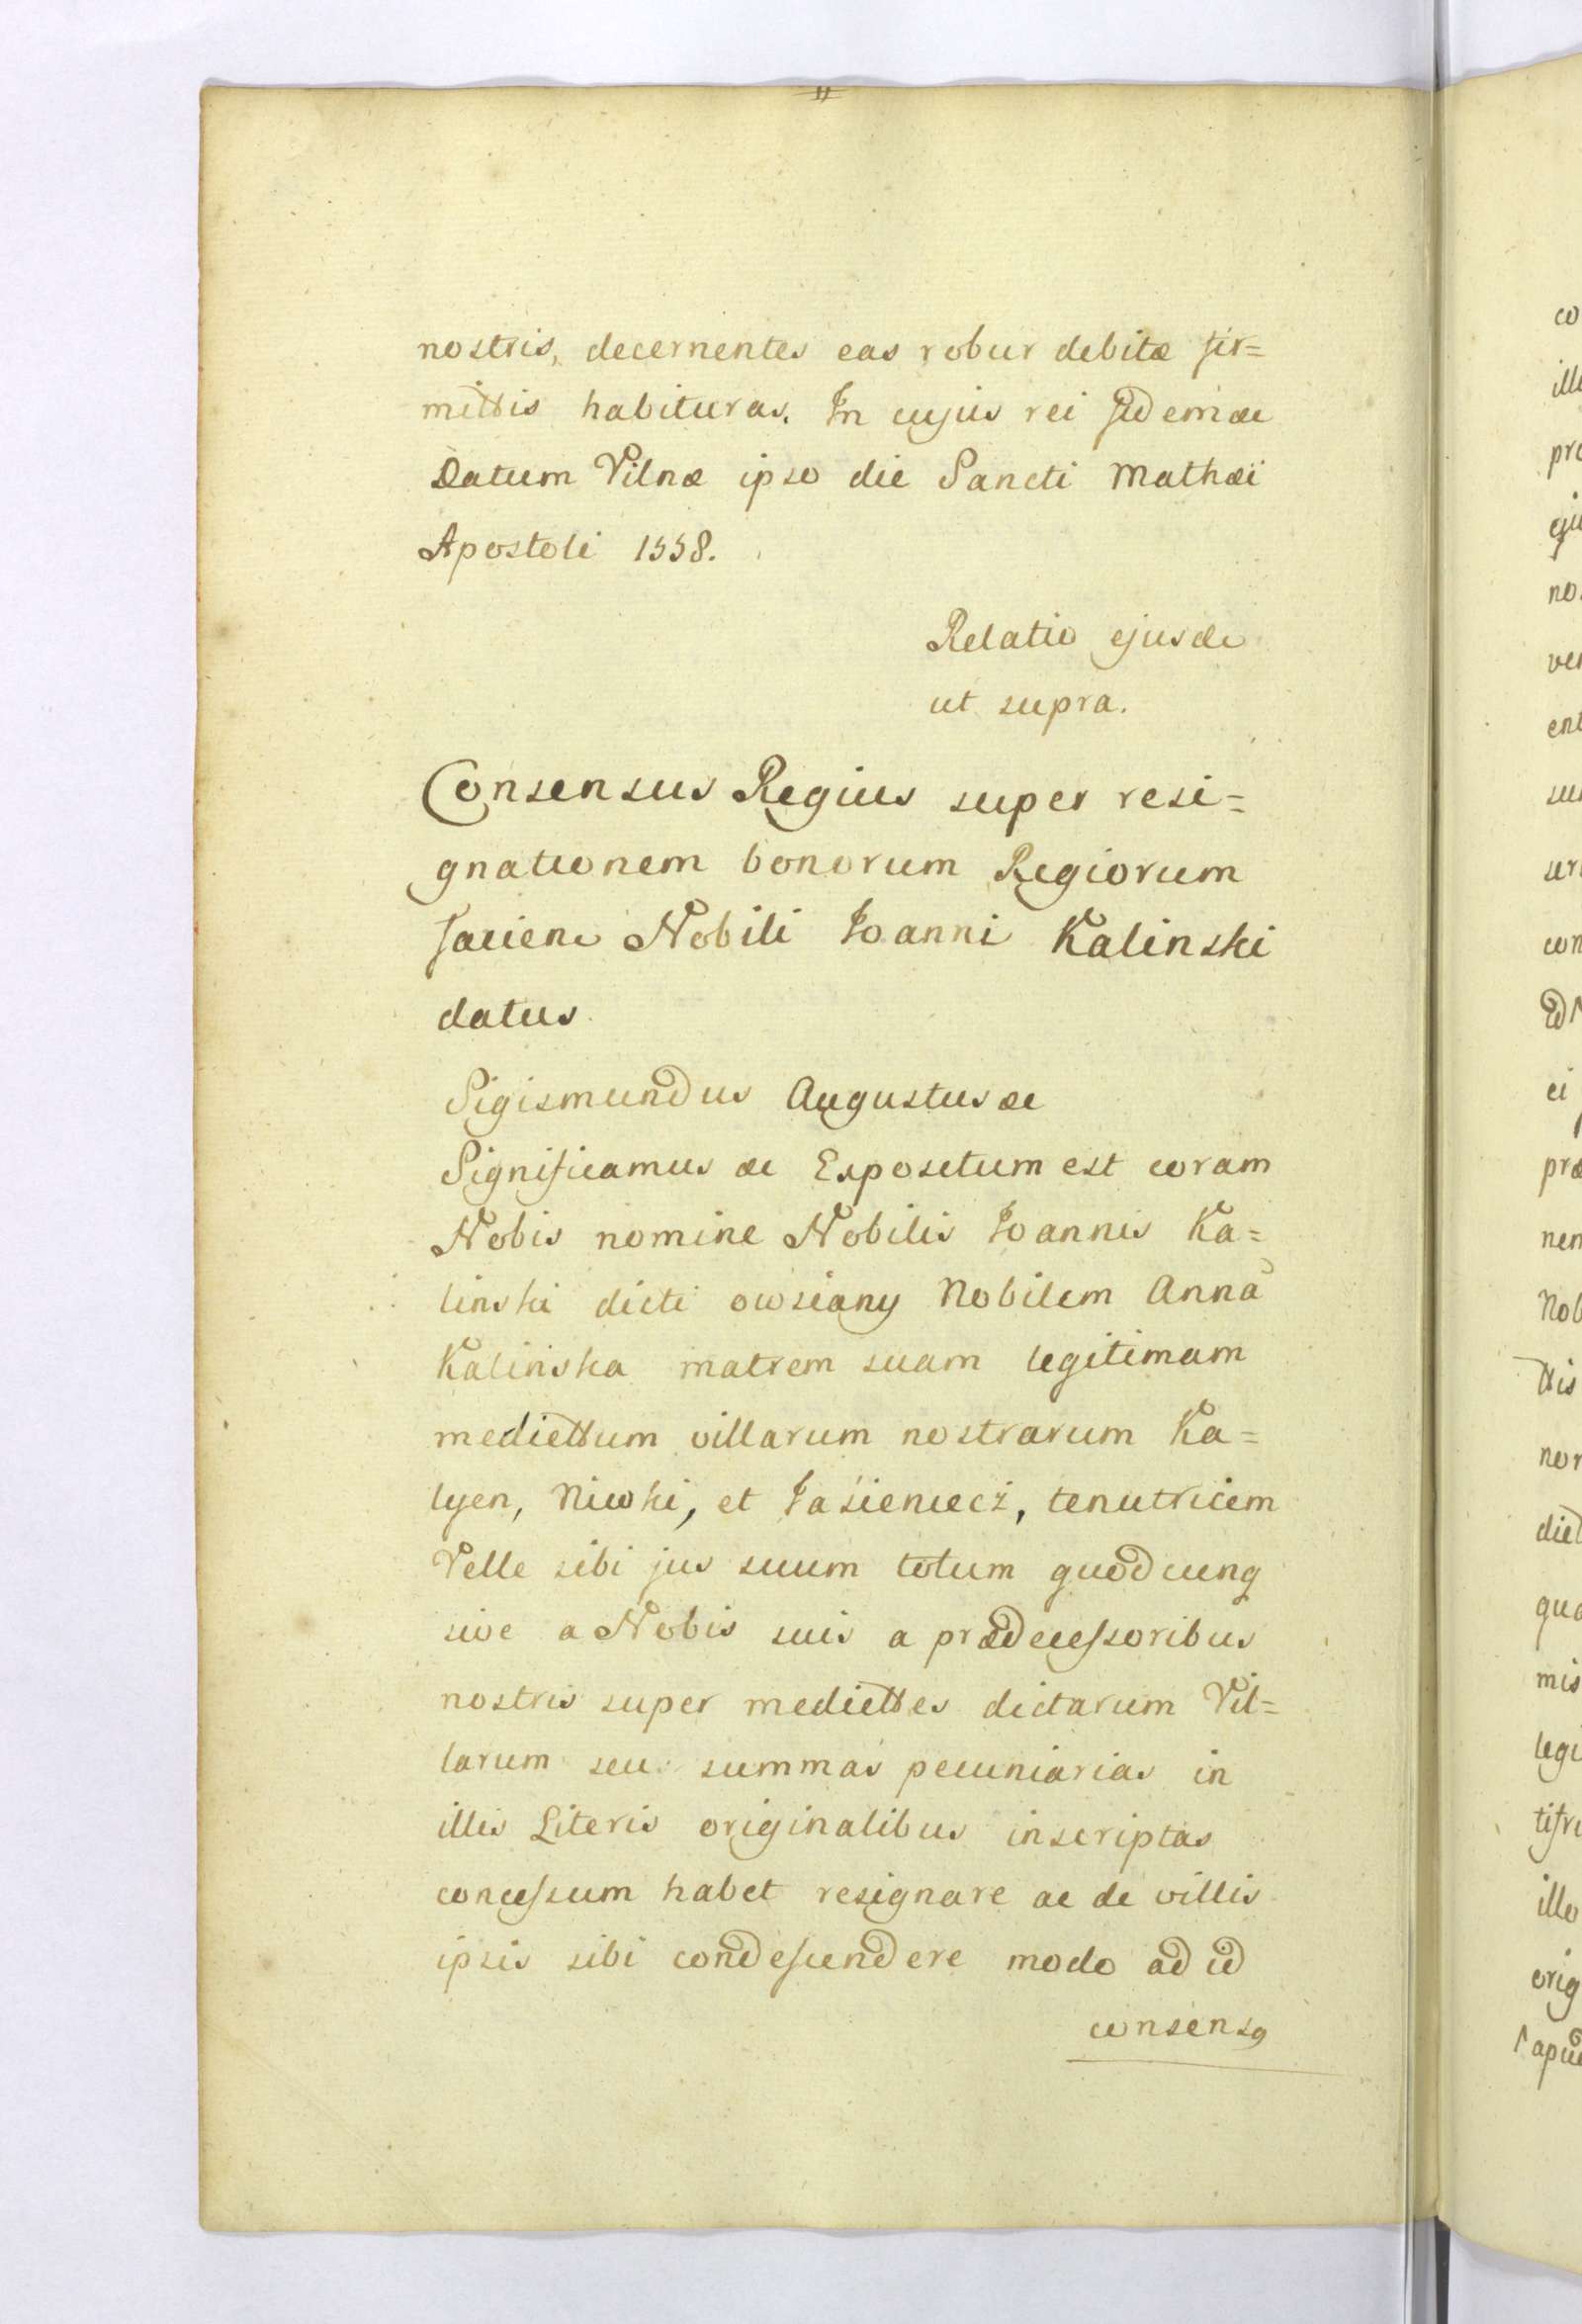 nostris, decernentes eas robur debitæ fir=
mittis habituras. In cujus rei fidem æc
Datum Vilnæ ipso die Sancti Mathæi
Apostoli 1558.
Relatio ejusdē
ut supra.
Consensus Regius super resi=
gnationem bonorum Regiorum
faciene Nobili Joanni Kalinski
datus
Sigismundus Augustus æc
Significamus æc Expositum est coram
Nobis nomine Nobilis Joannis Ka=
linski dicti owsiany Nobilem Annā
Kalinska matrem suam legitimam
mediettum villarum nostrarum Ka=
lyen, Niwki, et Jasieniecz, tenutricem
Velle sibi jus suum totum quodcunq
sive a Nobis suis a prædecessoribus
nostris super mediettes dictarum Vil=
larum seu summas pecuniarias in
illis Literis originalibus inscriptas
concessum habet resignare ac de villis
ipsis sibi condescendere modo ad id
consensq
co
ill
pro
eju
no
ver
ent
su
ur
con
ei
præ
nen
Nob
ttis
nor
dict
qua
mis
legi
illo
orig